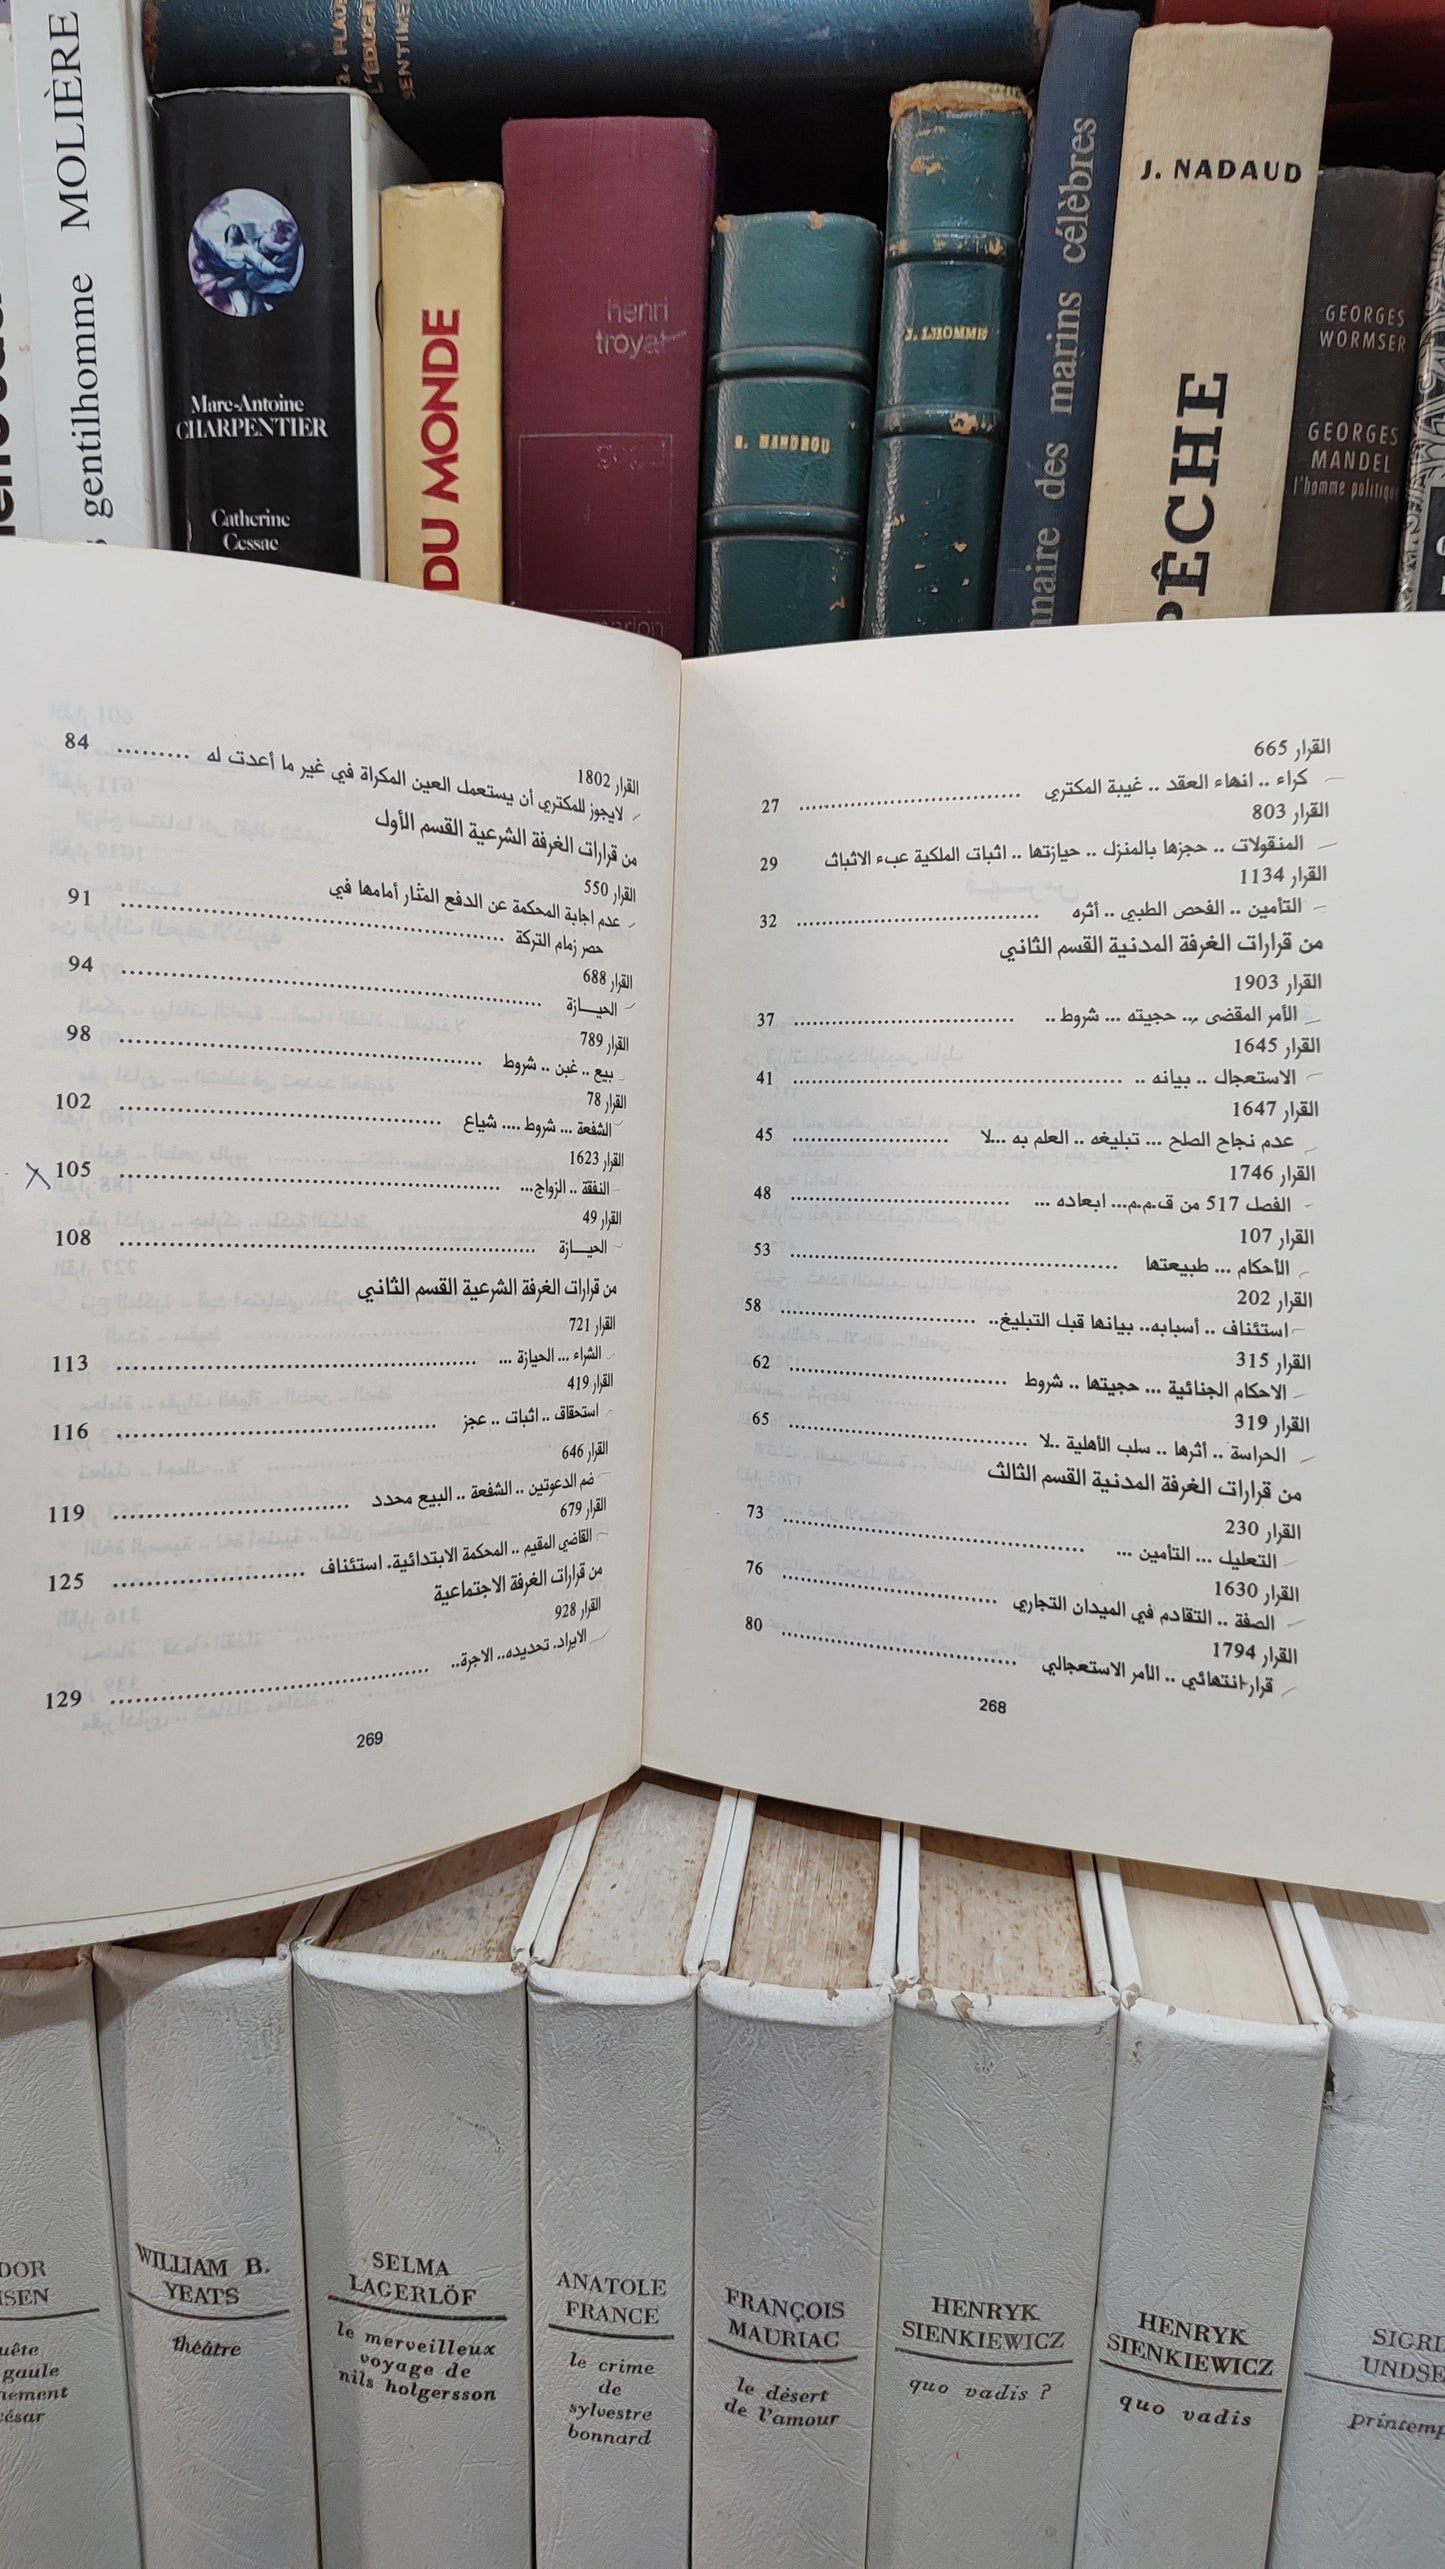 G. FLAU
L'ÉDUCA
SENTIMEN
MOLIÈRE
gentilhomme
Marc-Antoine
CHARPENTIER
Catherine
Cessac
DU MONDE
henri
troyat
R. MANDROU
J. LHOMME
nnaire des marins célèbres
J. NADAUD
PÊCHE
GEORGES
WORMSER
GEORGES
MANDEL
l'homme politique
القرار 665
كراء .. انهاء العقد .. غيبة المكتري ........ 27
القرار 803
المنقولات .. حجزها بالمنزل .. حيازتها .. اثبات الملكية عبء الاثباث 29
القرار 1134
التأمين .. الفحص الطبي .. أثره ........ 32
من قرارات الغرفة المدنية القسم الثاني
القرار 1903
الأمر المقضى ... حجيته ... شروط .. ........ 37
القرار 1645
الاستعجال .. بيانه .. ........ 41
القرار 1647
عدم نجاح الصلح ... تبليغه .. العلم به ...لا ........ 45
القرار 1746
الفصل 517 من ق.م.م... ابعاده ... ........ 48
القرار 107
الأحكام ... طبيعتها ........ 53
القرار 202
استئناف .. أسبابه.. بيانها قبل التبليغ.. ........ 58
القرار 315
الاحكام الجنائية ... حجيتها .. شروط ........ 62
القرار 319
الحراسة .. أثرها .. سلب الأهلية ..لا ........ 65
من قرارات الغرفة المدنية القسم الثالث
القرار 230
التعليل ... التأمين ... ........ 73
القرار 1630
الصفة .. التقادم في الميدان التجاري ........ 76
القرار 1794
قرار انتهائي .. الأمر الاستعجالي ........ 80
268
القرار 1802
لايجوز للمكتري أن يستعمل العين المكراة في غير ما أعدت له ......... 84
من قرارات الغرفة الشرعية القسم الأول
القرار 550
عدم اجابة المحكمة عن الدفع المثار أمامها في
حصر زمام التركة ........ 91
القرار 688
الحيـــازة ........ 94
القرار 789
بيع .. غبن .. شروط ........ 98
القرار 78
الشفعة ... شروط .... شياع ........ 102
القرار 1623
النفقة .. الزواج... ........ 105
القرار 49
الحيـــازة ........ 108
من قرارات الغرفة الشرعية القسم الثاني
القرار 721
الشراء ... الحيازة ... ........ 113
القرار 419
استحقاق .. اثبات .. عجز ........ 116
القرار 646
ضم الدعوتين .. الشفعة .. البيع محدد ........ 119
القرار 679
القاضي المقيم .. المحكمة الابتدائية. استئناف ........ 125
من قرارات الغرفة الاجتماعية
القرار 928
الايراد. تحديده.. الاجرة.. ........ 129
269
WILLIAM B.
YEATS
théâtre
SELMA
LAGERLÖF
le merveilleux
voyage de
nils holgersson
ANATOLE
FRANCE
le crime
de
sylvestre
bonnard
FRANÇOIS
MAURIAC
le désert
de l'amour
HENRYK
SIENKIEWICZ
quo vadis ?
HENRYK
SIENKIEWICZ
quo vadis
SIGRI
UNDSE
printemp